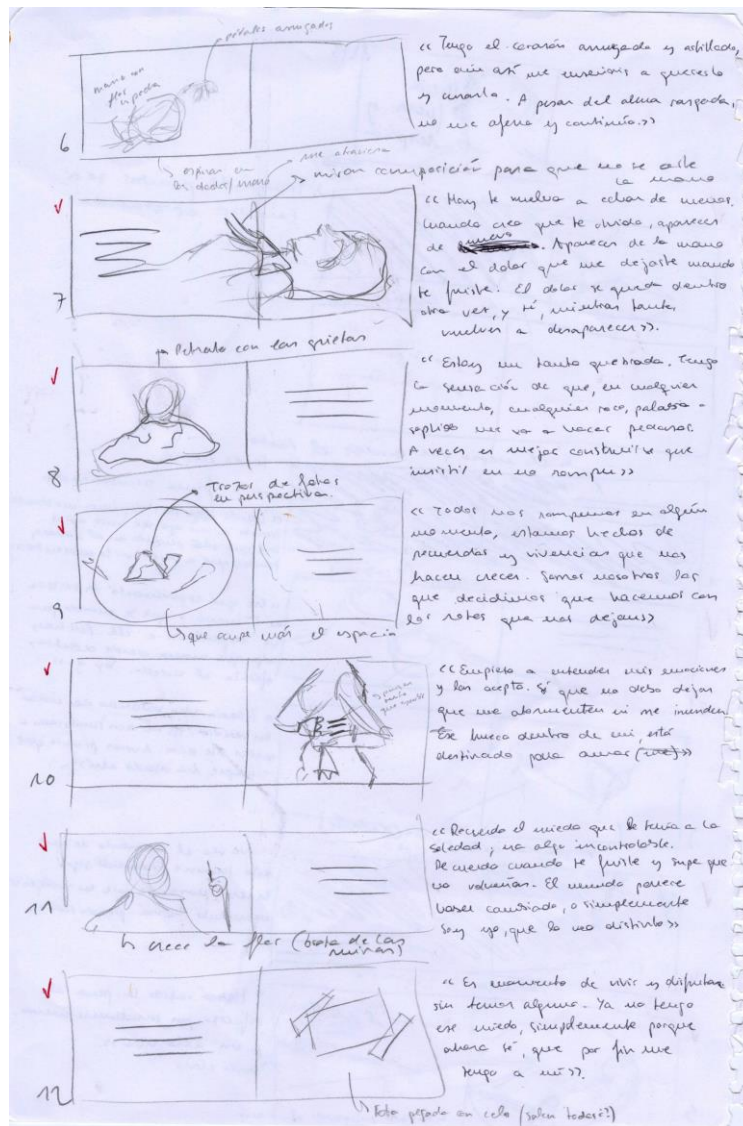 pétalos arrugados
mano con
flor
6
<< Tengo el corazón arrugado y astillado,
pero aún así me enseñaste a quererlo
y curarlo. A pesar del alma rasgada,
no me aferro y continúo.>>
espinas en
los dedos/mano
que atraviesa
mirar composición para que no se corte
la mano
7
<< Hoy te vuelvo a echar de menos.
Cuando creo que te olvido, apareces
de nuevo. Apareces de la mano
con el dolor que me dejaste cuando
te fuiste. El dolor se queda dentro
otra vez, y tú, mientras tanto,
vuelves a desaparecer>>.
Retrato con las grietas
8
<< Estoy un tanto quebrada. Tengo
la sensación de que, en cualquier
momento, cualquier roce, palabra
me va a hacer pedazos.
A veces es mejor construirse que
insistir en no romperse>>
Trozos de fotos
en perspectiva.
9
<< Todos nos rompemos en algún
momento, estamos hechos de
recuerdos y vivencias que nos
hacen crecer. Somos nosotros los
que decidimos que hacemos con
los rotos que nos dejan>>
que ocupe más el espacio
10
<< Empiezo a entender mis emociones
y las acepto. Sí que no debo dejar
que me atormenten ni me inunden
Ese hueco dentro de mi, está
destinado para amar
11
<< Recuerdo el miedo que le tenía a la
soledad, era algo incontrolable.
Recuerdo cuando te fuiste y supe que
no volverías. El mundo parece
haber cambiado, o simplemente
soy yo, que lo veo distinto>>
crece la flor (brota de las
ruinas)
12
<< Es momento de vivir y disfrutar
sin temor alguno. Ya no tengo
ese miedo, simplemente porque
ahora sé, que por fin me
tengo a mí>>.
Foto pegada con celo